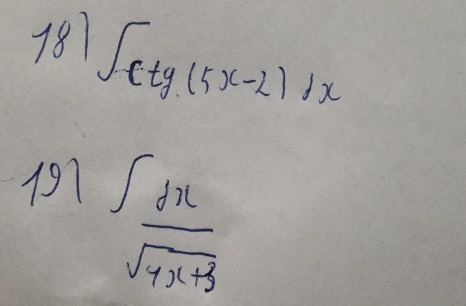 18) ∫ctg(5x-2) dx
19) ∫ dx
√4x+3